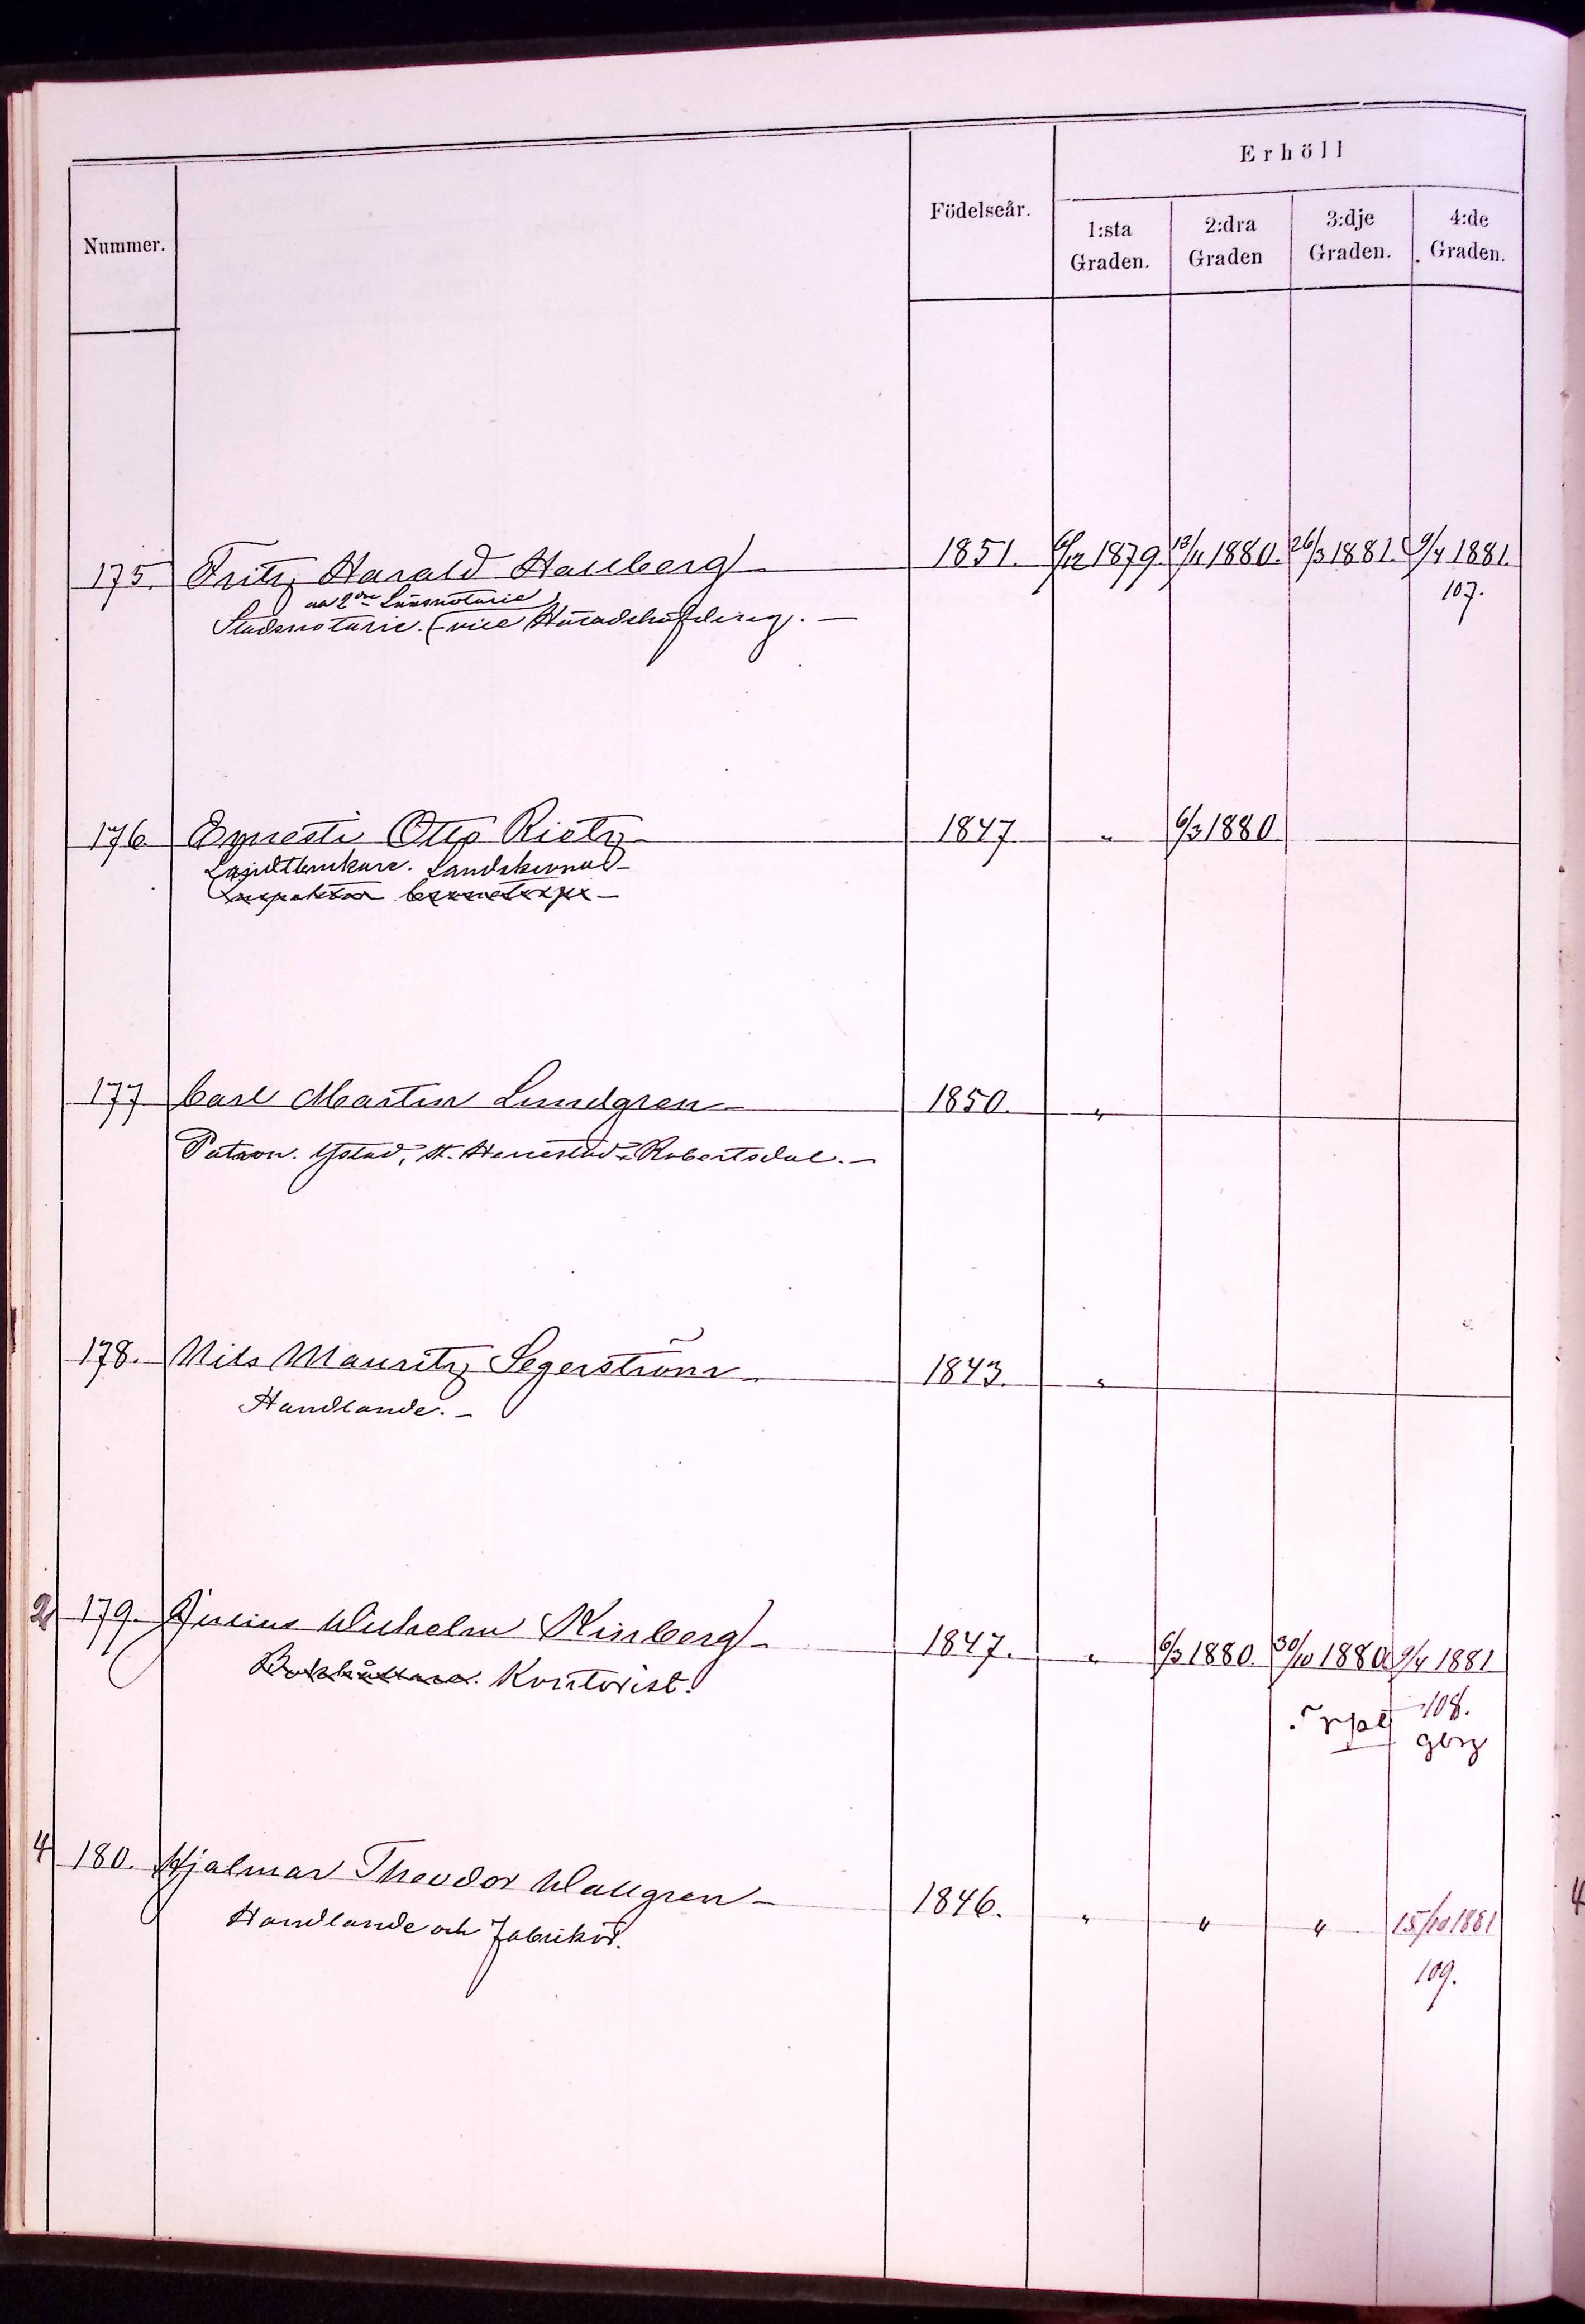 Erhöll
Nummer.
Födelseår.
1:sta Graden.
2:dra Graden
3:dje Graden.
4:de Graden.
175. Fritz Harald Hallberg 1851. 6/12 1879. 13/11 1880. 26/3 1881. 9/4 1881.
107.
2dre Länsnotarie
Stadsnotarie. (vice Häradshöfding.
176. Ernesti Otto Rietz 1847. " 6/3 1880
Landtbrukare. Landskrona
177 Carl Martin Lundgren 1850. "
Patron. Ystad, St. Herrestad Robertsdal.
178. Nils Mauritz Segerström 1843. "
Handlande.
2 179. Julius Wilhelm Kinberg 1847. " 6/3 1880. 30/10 1880. 9/4 1881
Bokhållare. Kontorist.
108.
4 180. Hjalmar Theodor Wallgren 1846. " " " 15/10 1881
Handlande och Fabrikör.
109.
4